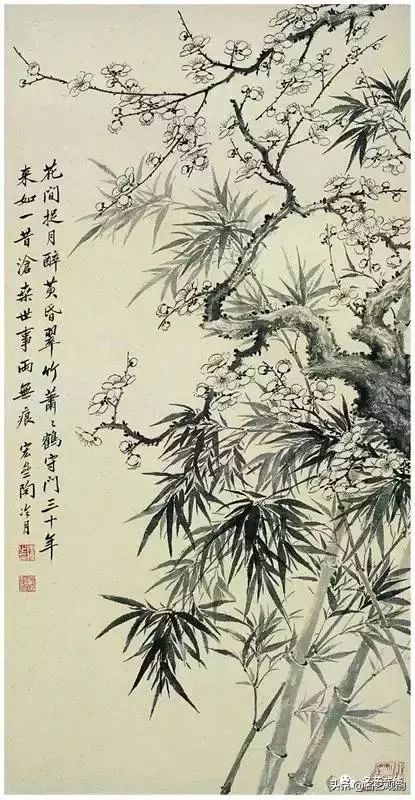 花間捉月醉黃昏翠竹蕭〻鶴守門三十年
來如一昔滄桑世事雨無痕 宏 陶冷月
头条